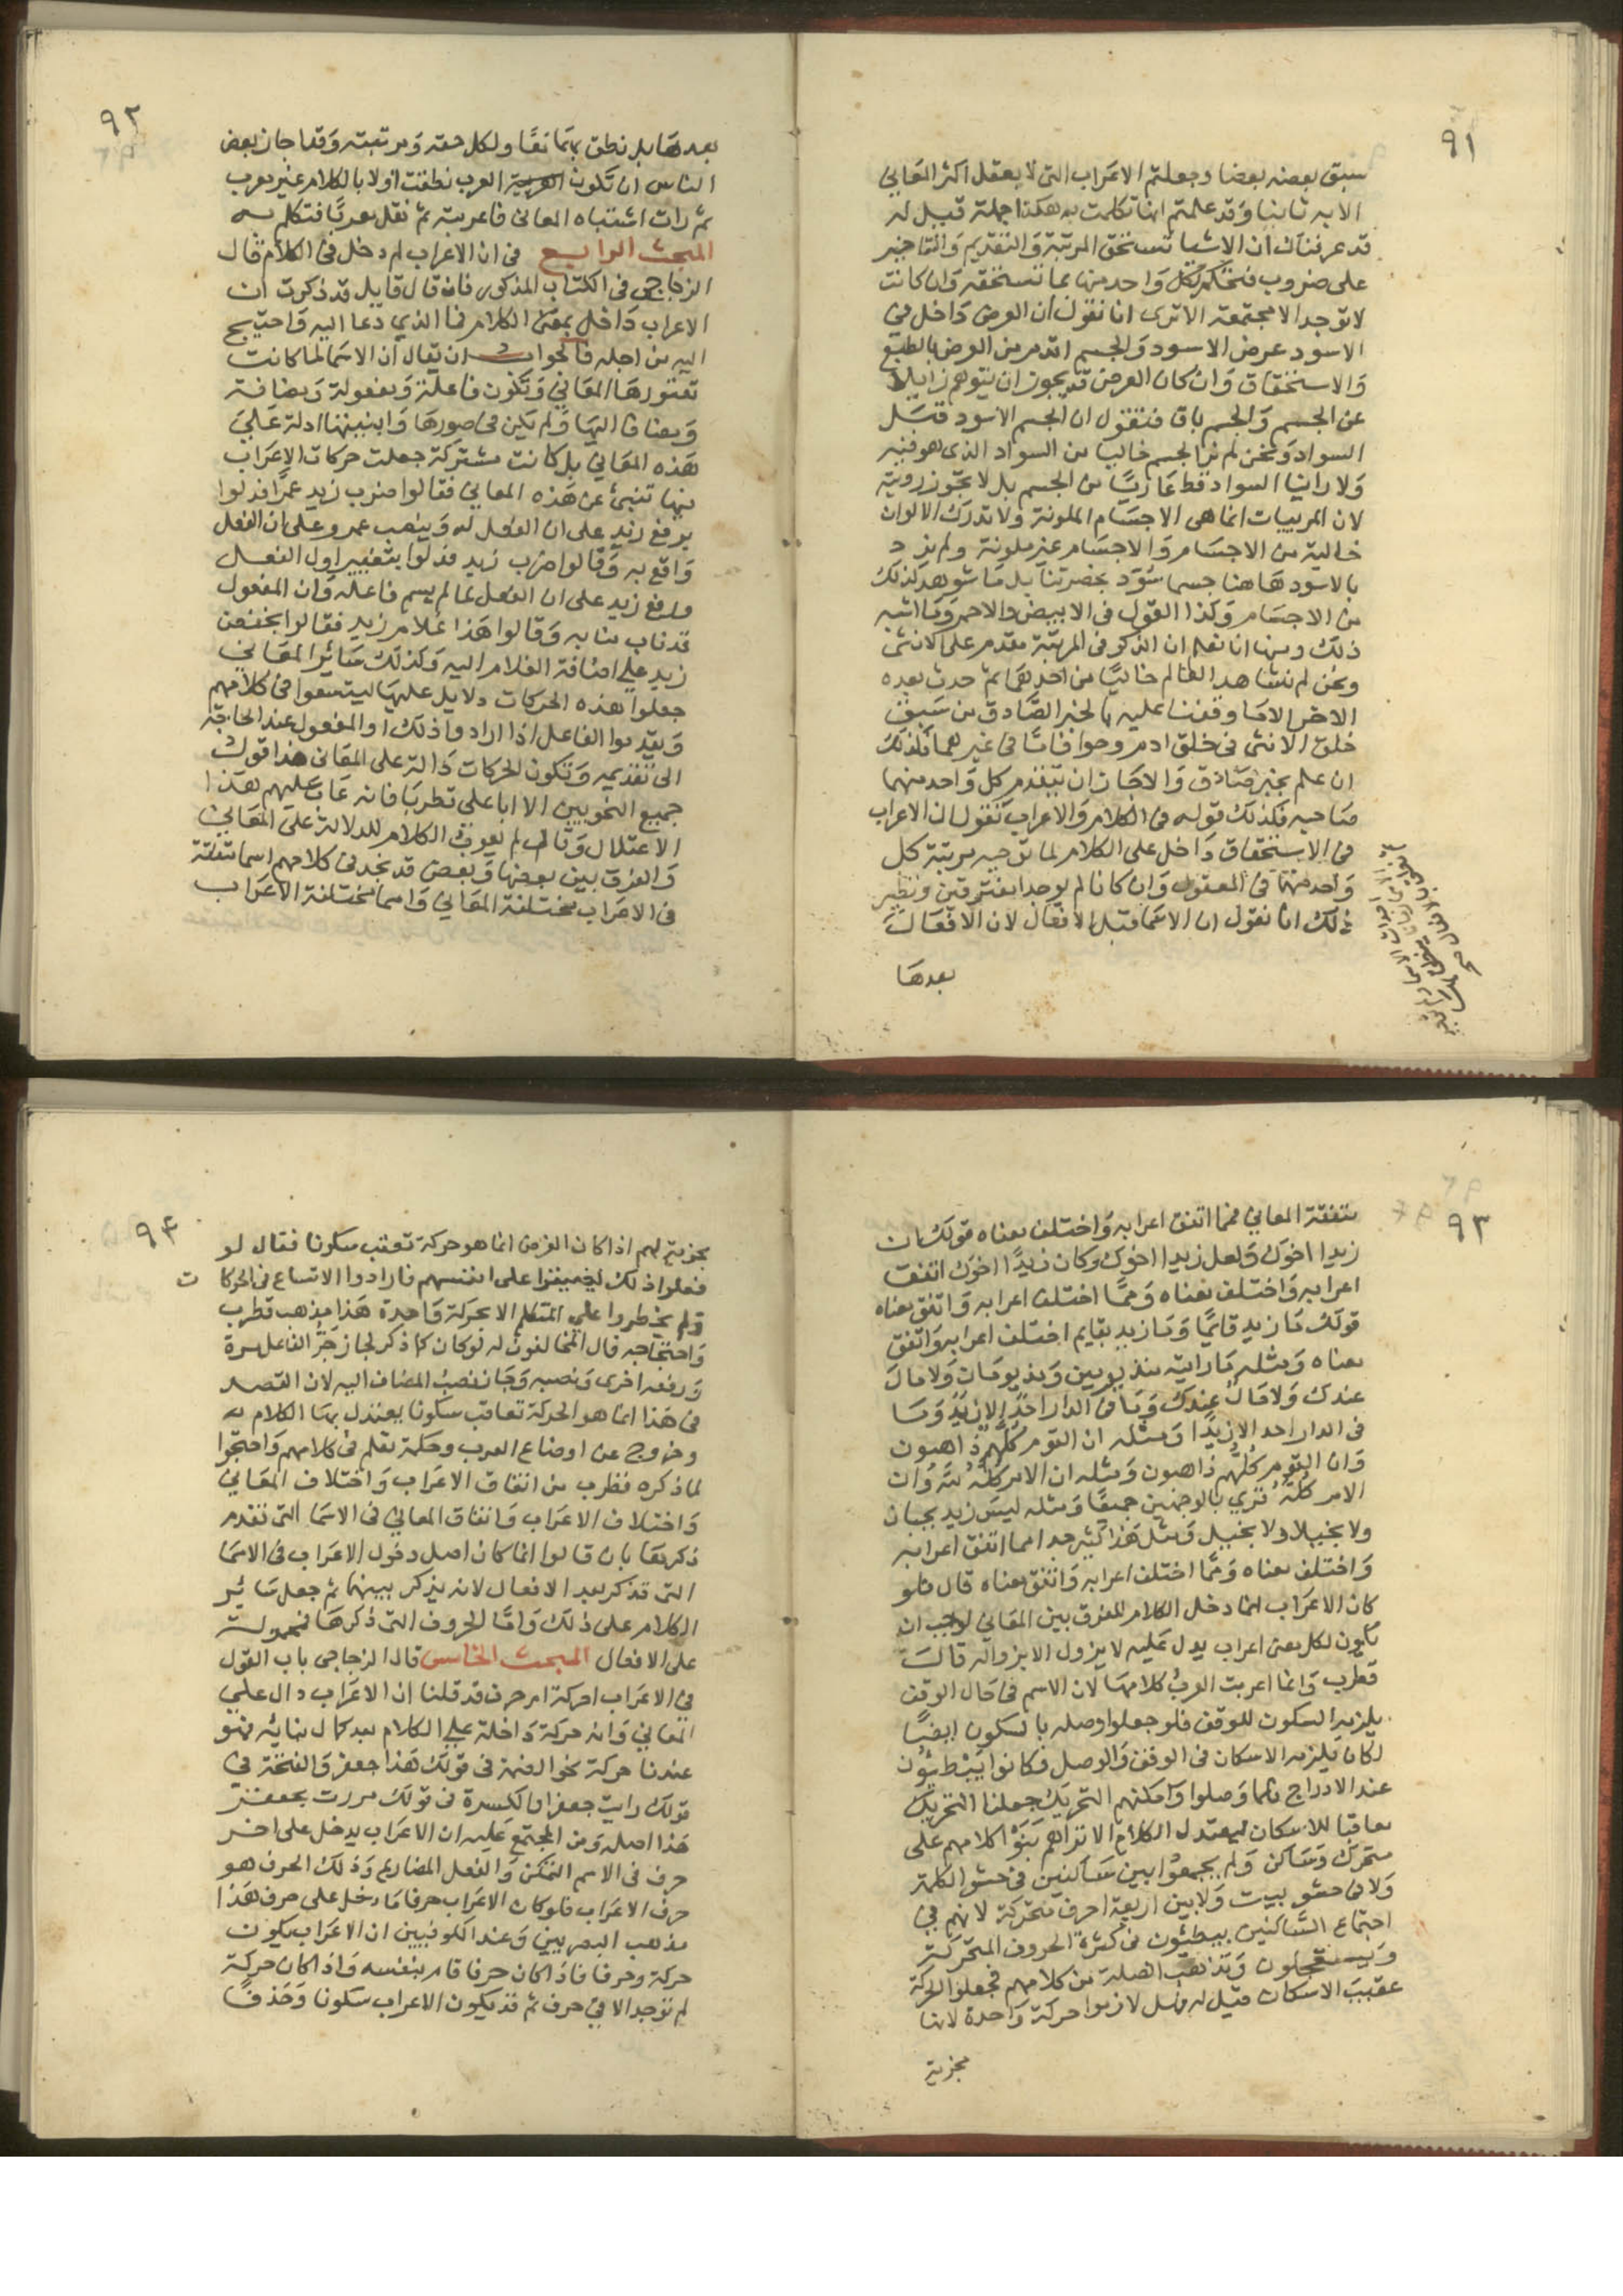 ٩١
سبق بعضه بعضا وجعلتم الاعراب التى لا يعقل اكثر المعانى
الا به ثانيا وقد علمتم انها تكلمت به هكذا جملة قيل له
قد عرفناك ان الاشيا تستحق المرتبة والتقديم والتاخير
على ضروب فنحكم لكل واحد منها بما تستحقه وان كانت
لا توجد الا مجتمعة الا ترى انا نقول ان العرض داخل فى
الاسود عرض الاسود والجسم اقدم من العرض بالطبع
والاستحقاق وان كان العرض قد يجوز ان يتوهم زايلا
عن الجسم والجسم باق فنقول ان الجسم الاسود قبل
السواد ونحن لم نر الجسم خاليا من السواد الذى هو فيه
ولا راينا السواد قط عاريا من الجسم بل لا تجوز رويته
لان المرييات انما هى الاجسام الملونة ولا تدرك الالوان
خالية من الاجسام والاجسام غير ملونة ولم نرد
بالاسود هاهنا جسما سُوّد بحضرتنا بل ما شوهد كذلك
من الاجسام وكذا القول فى الابيض والاحمر وما اشبه
ذلك ومنها انا نعلم ان الذكر فى المرتبة مقدم على الانثى
ونحن لم نشاهد العالم خاليا من احدهما ثم حدث بعده
الاخر الا ما وقفنا عليه بالخبر الصادق من سبق
خلق الانثى فى خلق ادم وحوا فاما فى غيرهما فكذلك
ان علم بخبر صادق والا جاز ان يتقدم كل واحد منهما
صاحبه فكذلك قوله فى الكلام والاعراب نقول ان الاعراب
فى الاستحقاق داخل على الكلام لما توجبه مرتبة كل
واحد منهما فى المعقول وان كانا لم يوجدا مفترقين ونظير
ذلك انا نقول ان الاسما قبل الافعال لان الافعال
بعدها
٩٢
بعدها بل نطق بهما معًا ولكل حقه ومرتبته وقد اجاز بعض
الناس ان تكون العرب نطقت اولا بالكلام غير معرب
ثم رات اشتباه المعانى فاعربته ثم نقل معربًا فتكلم به
المبحث الرابع فى ان الاعراب لم دخل فى الكلام قال
الزجاجى فى الكتاب المذكور فان قال قايل قد ذكرت ان
الاعراب داخل بمعنى الكلام فما الذى دعا اليه واحتيج
اليه من اجله فالجواب ان يقال ان الاسما لما كانت
تعتورها المعانى وتكون فاعلة ومفعولة ومضافة
ومضافا اليها ولم يكن فى صورها وابنيتها ادلة على
هذه المعانى بل كانت مشتركة جعلت حركات الاعراب
فيها تنبئ عن هذه المعانى فقالوا ضرب زيد عمرًا فدلوا
برفع زيد على ان الفعل له وبنصب عمرو على ان الفعل
واقع به وقالوا ضرب زيد فدلوا بتغيير اول الفعل
ورفع زيد على ان الفعل لما لم يسم فاعله وان المفعول
قد ناب منابه وقالوا هذا غلام زيد فقالوا بخفض
زيد على اضافة الغلام اليه وكذلك سائر المعانى
جعلوا هذه الحركات دلايل عليها ليتسعوا فى كلامهم
ويقدموا الفاعل اذا ارادوا ذلك او المفعول عند الحاجة
الى تقديمه وتكون الحركات دالة على المعانى هذا قول
جميع النحويين الا ابا على قطربا فانه عاب عليهم هذا
الاعتلال وقال لم يعرب الكلام للدلالة على المعانى
والفرق بين بعضها وبعض قد نجد فى كلامهم اسما متفقة
فى الاعراب مختلفة المعانى واسما مختلفة الاعراب
٩٣
متفقة المعانى فمما اتفق اعرابه واختلف معناه قولك ان
زيدا اخوك ولعل زيدا اخوك وكان زيدًا اخوك اتفق
اعرابه واختلف معناه ومما اختلف اعرابه واتفق معناه
قولك ما زيد قايمًا وما زيد بقايم اختلف اعرابه واتفق
معناه ومثله ما رايته منذ يومين ومنذ يومان ولا مال
عندك ولا مالٌ عندك وما فى الدار احدٌ الا زيدٌ وما
فى الدار احد الا زيدًا ومثله ان القوم كلَّهم ذاهبون
وان القوم كلُّهم ذاهبون ومثله ان الامر كلَّه لله وان
الامر كلُّه قرى بالوجهين جميعًا ومثله ليس زيد بجبان
ولا بخيلا ولا بخيل ومثل هذا كثير جدا مما اتفق اعرابه
واختلف معناه ومما اختلف اعرابه واتفق معناه قال فلو
كان الاعراب انما دخل الكلام للفرق بين المعانى لوجب ان
يكون لكل معنى اعراب يدل عليه لا يزول الا بزواله قال
قطرب وانما اعربت العرب كلامها لان الاسم فى حال الوقف
يلزمه السكون للوقف فلو جعلوا وصله بالسكون ايضًا
لكان يلزمه الاسكان فى الوقف والوصل فكانوا يبطئون
عند الادراج فلما وصلوا وامكنهم التحريك جعلنا التحريك
معاقبا للاسكان ليعتدل الكلام الا تراهم بَنَوْا كلامهم على
متحرك وساكن ولم يجمعوا بين ساكنين فى حشو الكلمة
ولا فى حشو بيت ولا بين اربعة احرف متحركة لانهم فى
اجتماع الساكنين يبطئون فى كثرة الحروف المتحركة
ويستعجلون وتذهب المهلة من كلامهم فجعلوا الحركة
عقيب الاسكان قيل له فهل لازموا حركة واحدة لانها
مجزية
٩٤
مجزية لهم اذا كان الغرض انما هو حركة تعقب سكونا فقال لو
فعلوا ذلك لضيقوا على انفسهم فارادوا الاتساع فى الحركات
ولم يخطروا على المتكلم الا بحركة واحدة هذا مذهب قطرب
واحتجاجه قال المخالفون له لو كان كما ذكر لجاز جَرُّ الفاعل مرة
ورفعه اخرى ونصبه وجاز نصبُ المضاف اليه لان القصد
فى هذا انما هو الحركة تعاقب سكونا يعتدل بها الكلام به
وخروج عن اوضاع العرب وحكمة نظم فى كلامهم واحتجوا
لما ذكره قطرب من اتفاق الاعراب واختلاف المعانى
واختلاف الاعراب واتفاق المعانى فى الاسما التى تقدم
ذكرها بان قالوا انما كان اصل دخول الاعراب فى الاسما
التى تذكر بعد الافعال لانه يذكر بينهما ثم جعل سائر
الكلام على ذلك واما الحروف التى ذكرها فمحمولة
على الافعال المبحث الخامس قال الزجاجى باب القول
فى الاعراب احركة ام حرف قد قلنا ان الاعراب دال على
المعانى وانه حركة داخلة على الكلام بعد كمال بنائه فهو
عندنا حركة نحو الضمة فى قولك هذا جعفر والفتحة فى
قولك رايت جعفرا والكسرة فى قولك مررت بجعفر
هذا اصله ومن المجتمع عليه ان الاعراب يدخل على اخر
حرف فى الاسم المتمكن والفعل المضارع وذلك الحرف هو
حرف الاعراب فلو كان الاعراب حرفا ما دخل على حرف هذا
مذهب البصريين وعند الكوفيين ان الاعراب يكون
حركة وحرفا فاذا كان حرفا قام بنفسه واذا كان حركة
لم توجد الا فى حرف ثم قد يكون الاعراب سكونا وحذفًا